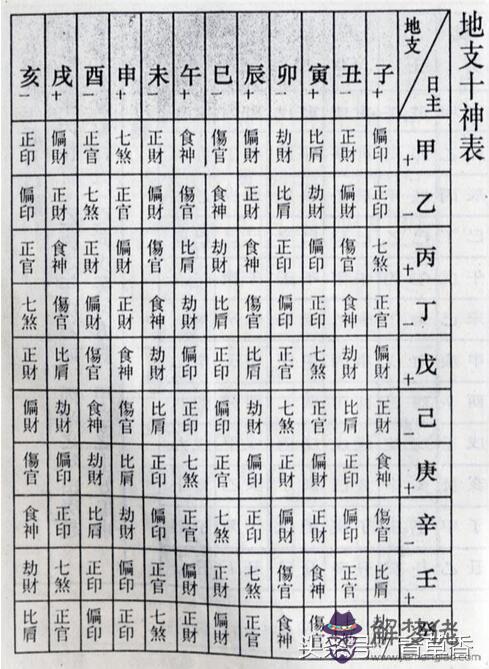 地支十神表
地支 日主
子+ 丑一 寅+ 卯一 辰+ 巳一 午+ 未一 申+ 酉一 戌+ 亥一
甲+ 偏印 正財 比肩 劫財 偏財 傷官 食神 正財 七煞 正官 偏財 正印
乙一 正印 偏財 劫財 比肩 正財 食神 傷官 偏財 正官 七煞 正財 偏印
丙+ 七煞 傷官 偏印 正印 食神 劫財 比肩 傷官 偏財 正財 食神 正官
丁一 正官 食神 正印 偏印 傷官 比肩 劫財 食神 正財 偏財 傷官 七煞
戊+ 偏財 劫財 七煞 正官 比肩 正印 偏印 劫財 食神 傷官 比肩 正財
己一 正財 比肩 正官 七煞 劫財 偏印 正印 比肩 傷官 食神 劫財 偏財
庚+ 食神 正印 偏財 正財 偏印 正官 七煞 正印 比肩 劫財 偏印 傷官
辛一 傷官 偏印 正財 偏財 正印 七煞 正官 偏印 劫財 比肩 正印 食神
壬+ 比肩 正官 食神 傷官 七煞 正財 偏財 正官 偏印 正印 七煞 劫財
癸 傷官 食神 正官 偏財 正財 七煞 正印 偏印 正官 比肩
解夢佬